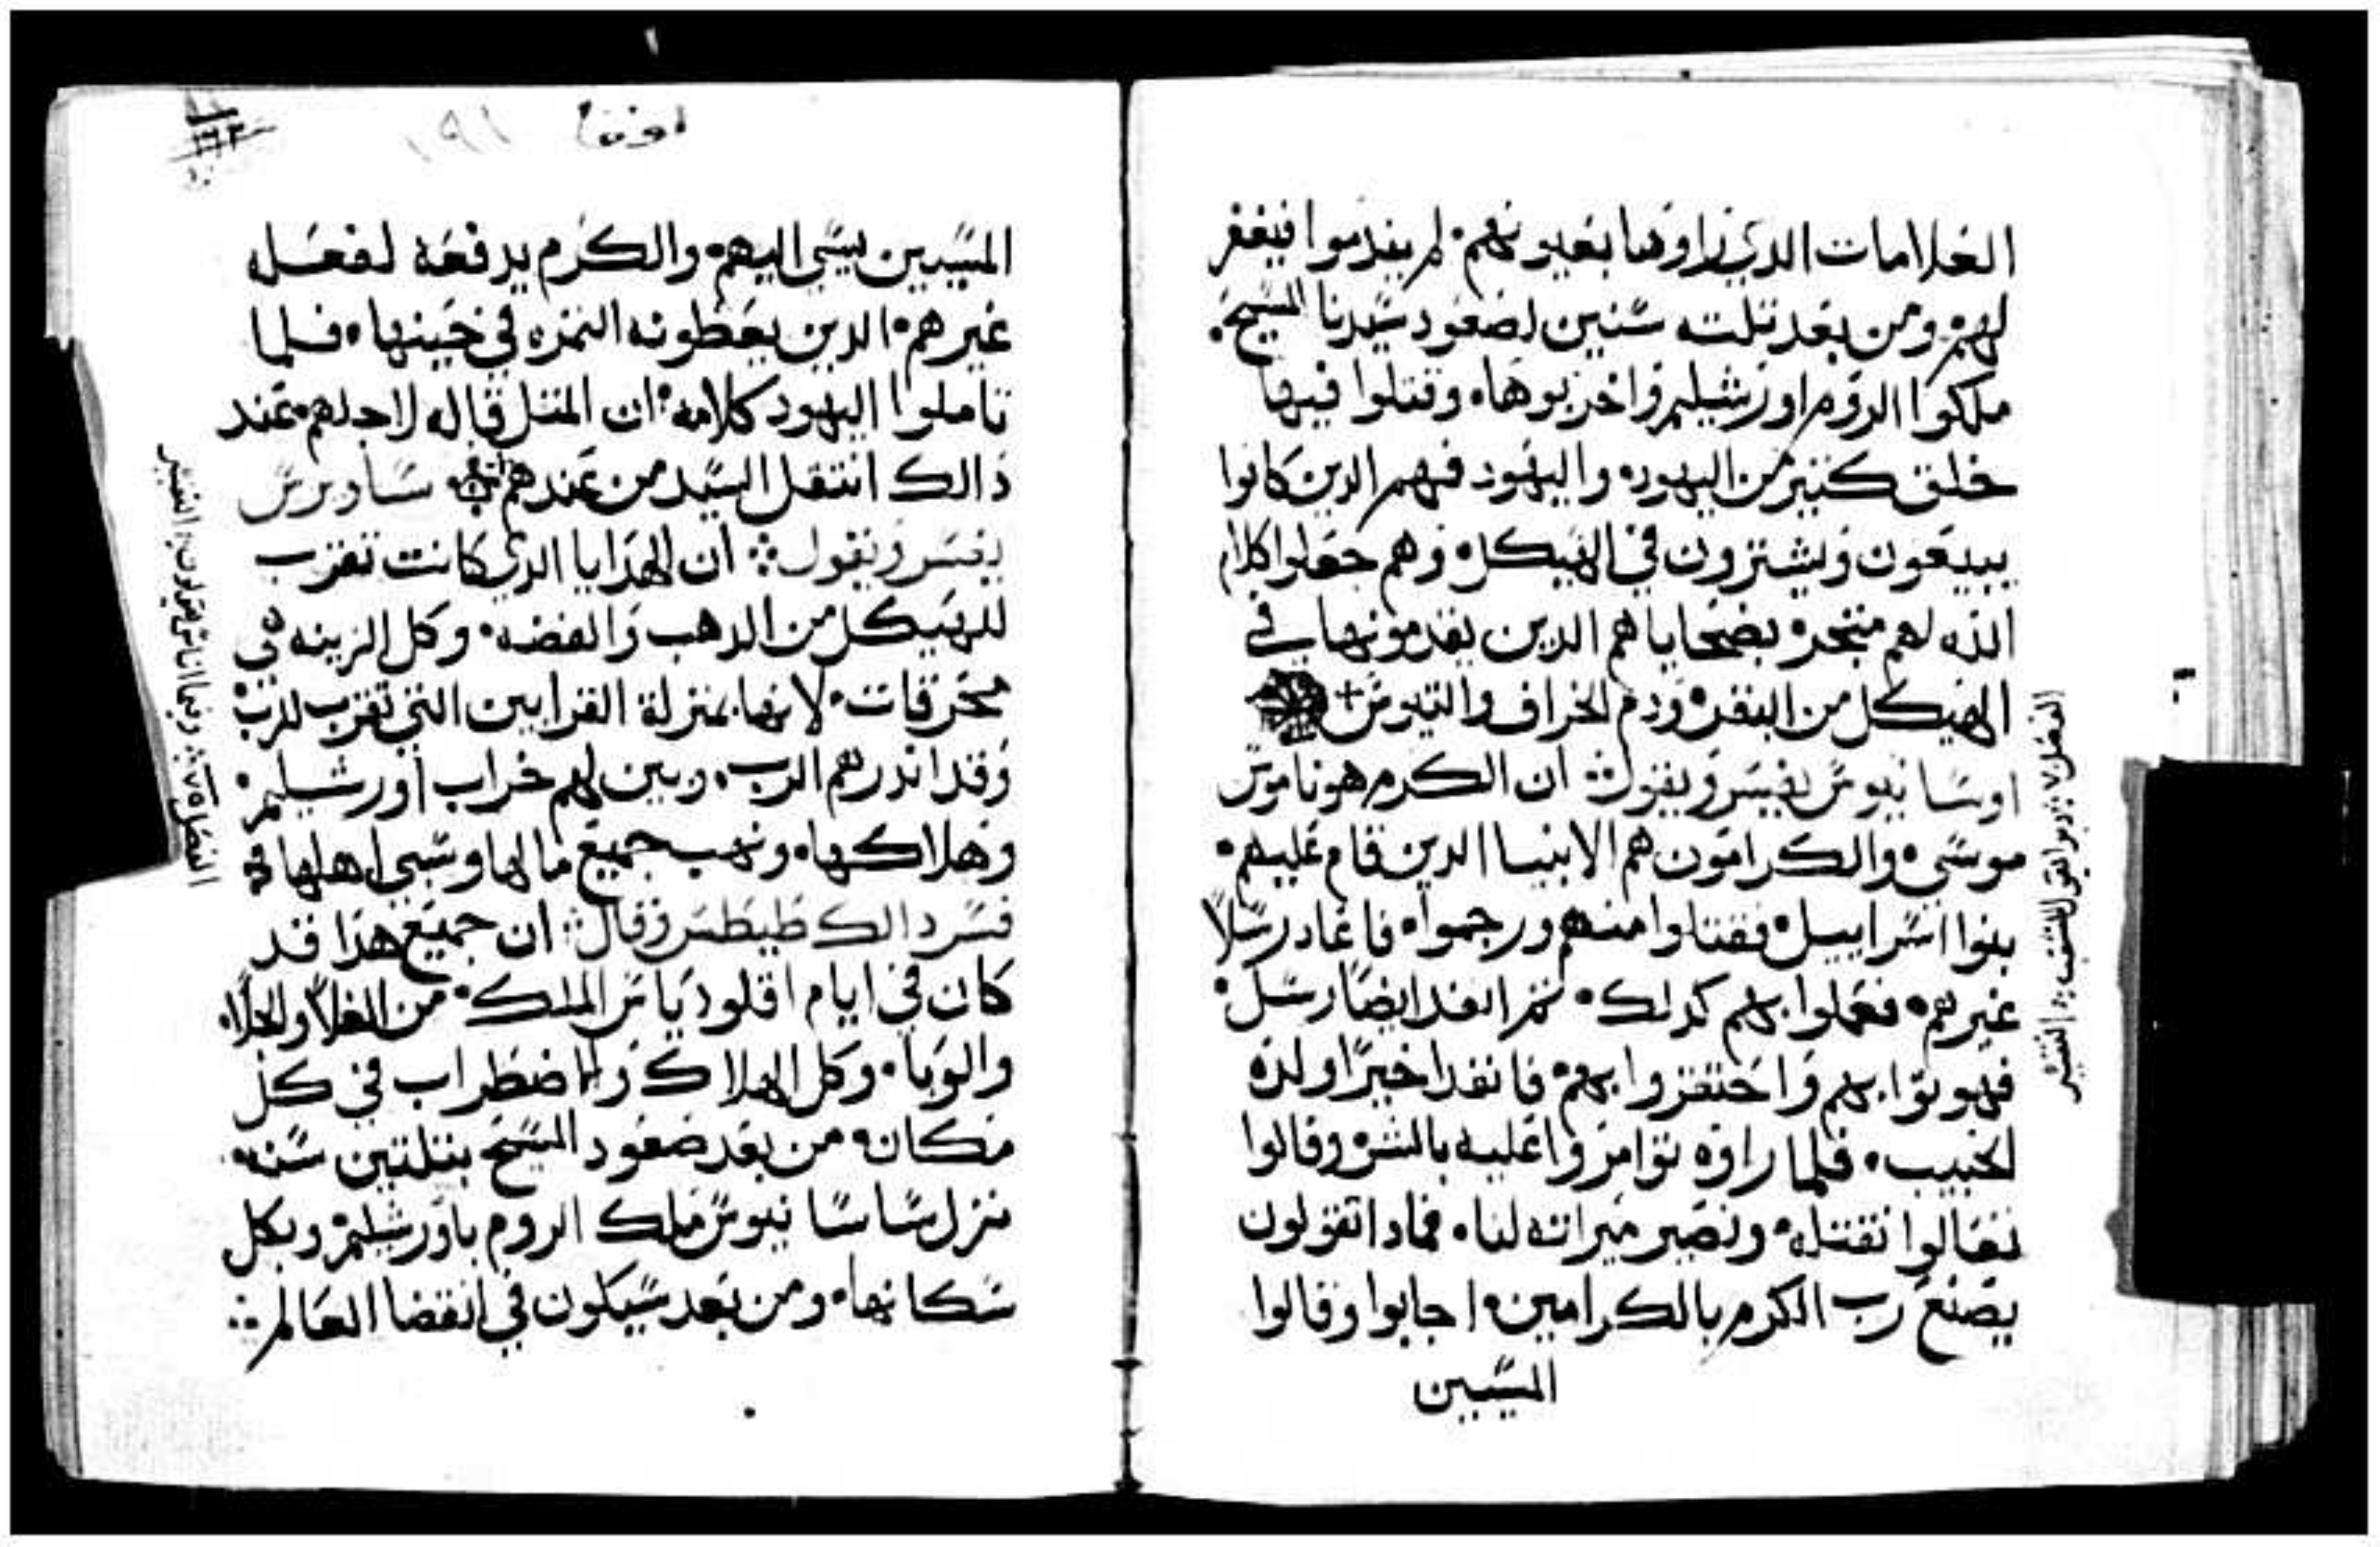 العلامات الدي راوها بعيونهم۰ لم يندموا فيغفر
لهم۰ ومن بعد تلته سنين لصعود سيدنا المسيح۰
ملكوا الروم اورشيليم واخربوها۰ وقتلوا فيها
خلق كتير من اليهود۰ واليهود فهم الدين كانوا
يبيعون ويشترون في الهيكل۰ وهم جعلوا كلام
الله لهم متجر۰ بضحاياهم الدين يقدمونها في
الهيكل من البقر۰ ودم الخراف والتيوس +
اوسابيوس يفسر ويقول ان الكرم هو ناموس
موسي۰ والكرامون هم الانبيا الدين قام عليهم۰
بنوا اسراييل۰ فقتلوا منهم ورجموا۰ فاعاد رسلاً
غيرهم۰ فعملوا بهم كدلك۰ تم انفد ايضاً رسل۰
فهونوا بهم واحتقروا بهم۰ فانفد اخيراً ولده
الحبيب۰ فلما راوه توامروا عليه بالشر وقالوا
تعالوا نقتله۰ ونصير ميراته لنا۰ فمادا تقولون
يصنع رب الكرم بالكرامين۰ اجابوا وقالوا
المسيين
الفصل ٧
التفسير
لوقا ١٩١
المسيين يسي اليهم۰ والكرم يدفعه لفعله
غيرهم۰ الدين يعطونه التمره في حينها۰ فلما
تاملوا اليهود كلامه۰ ان المتل قاله لاجلهم۰ عند
دالك انتقل السيد من عندهم ساويرس
يفسر ويقول ان الهدايا الدي كانت تقرب
للهيكل من الدهب والفضه۰ وكل الزينه هي
محرقات۰ لانها بمنزلة القرابين التي تقرب للرب
وقد اندرهم الرب۰ وبين لهم خراب اورشيليم۰
وهلاكها۰ ونهب جميع مالها وسبي اهلها
فسر دالك طيطس وقال ان جميع هدا قد
كان في ايام اقلودياس الملك۰ من الغلا والجلا۰
والوبا۰ وكل الهلاك والاضطراب في كل
مكان۰ من بعد صعود المسيح بتلتين سنه۰
نزل ساسانيوس ملك الروم باورشليم۰ وبكل
سكانها۰ ومن بعد سيكون في انقضا العالم
الفصل ٧٥
التفسير